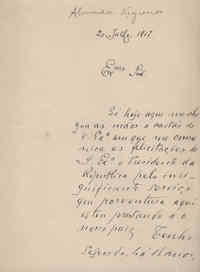 Almada Negreiros
20 Julho 1917.
Exmo Snr.
Só hoje aqui me che-
gou às mãos o cartão de
V. Exª em que me comu-
nica as felicitações de
S. Exª o Presidente da
República pelo insi-
gnificante serviço
que porventura aqui
estou prestando ao
meu paiz. Tenho